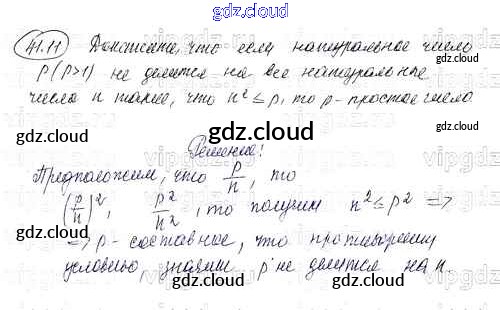 gdz.cloud
41.11 Докажите, что если натуральное число
p (p>1) не делится на все натуральные
числа n такие, что n² ≤ p, то p - простое число
gdz.cloud
gdz.cloud
gdz.cloud
Решение!
Предположим, что p/n, то
(p/n)², p²/n², то получим n² ≤ p² =>
=> p - составное, что противоречит
условию, значит p не делится на n.
gdz.cloud
gdz.cloud
gdz.cloud